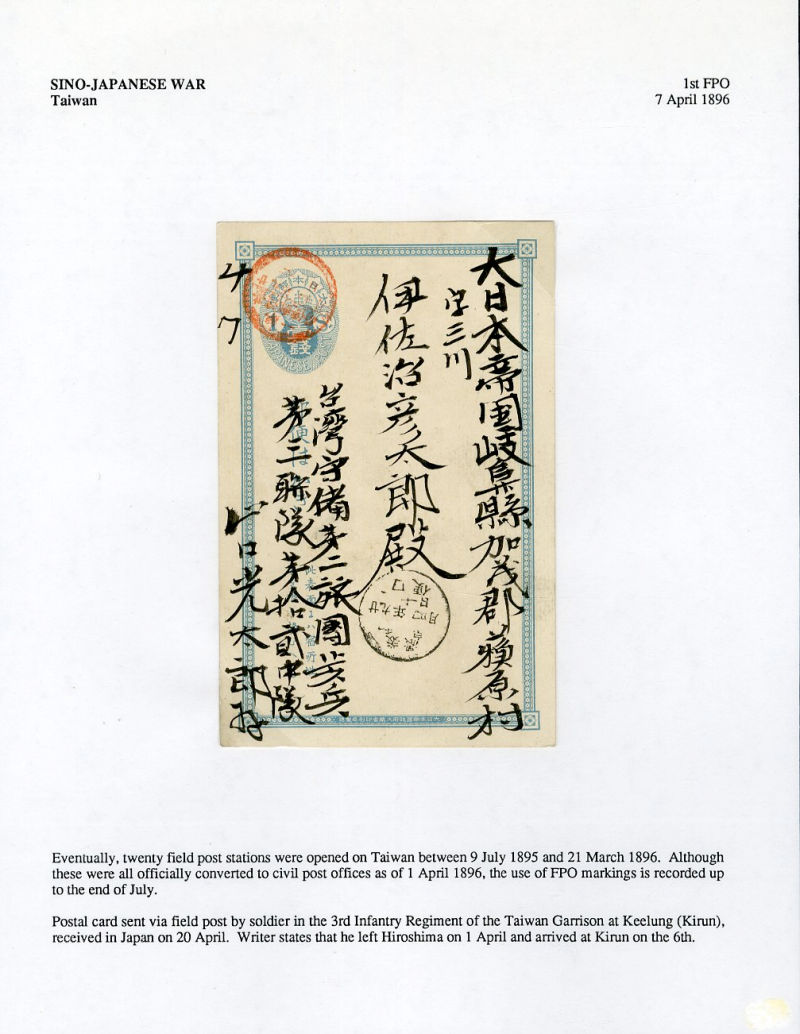 SINO-JAPANESE WAR
Taiwan
1st FPO
7 April 1896
大日本帝国岐阜縣加茂郡蘓原村
字三川
伊佐治彦太郎殿
台灣守備第二旅團歩兵
第二聯隊第拾貳中隊
口光太郎
4
7
Eventually, twenty field post stations were opened on Taiwan between 9 July 1895 and 21 March 1896. Although
these were all officially converted to civil post offices as of 1 April 1896, the use of FPO markings is recorded up
to the end of July.
Postal card sent via field post by soldier in the 3rd Infantry Regiment of the Taiwan Garrison at Keelung (Kirun),
received in Japan on 20 April. Writer states that he left Hiroshima on 1 April and arrived at Kirun on the 6th.